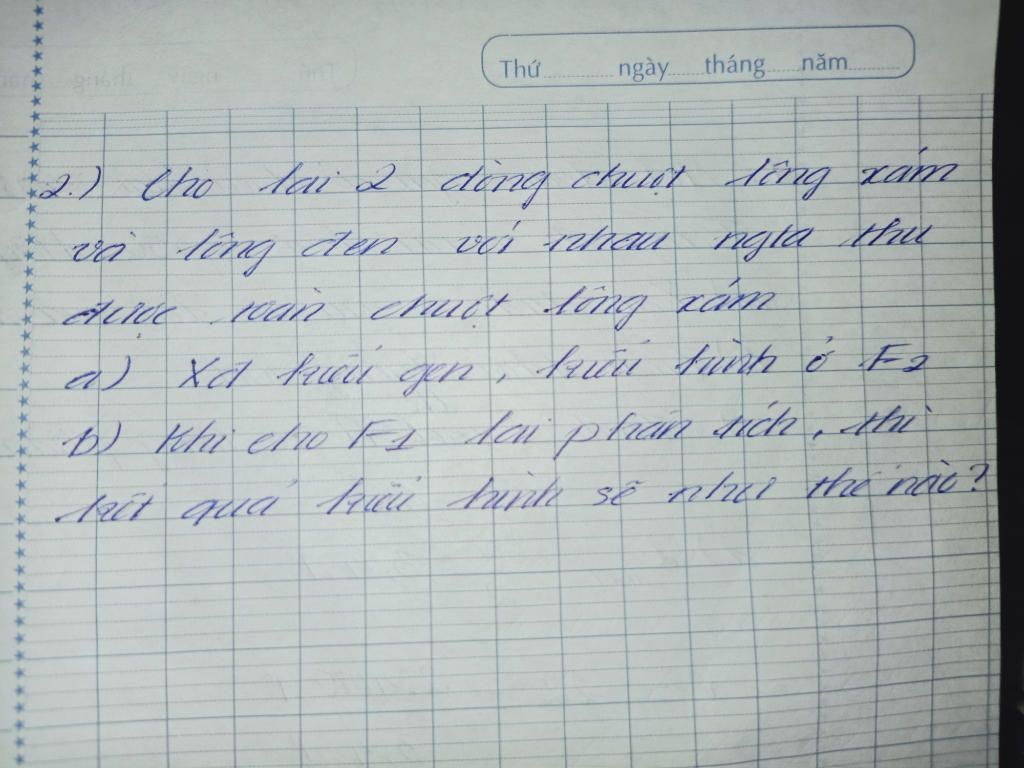 Thứ ngày tháng năm
2.) Cho lai 2 dòng chuột lông xám
và lông đen với nhau ngta thu
được toàn chuột lông xám
a) Xđ kiểu gen, kiểu hình ở F2
b) Khi cho F1 lai phân tích, thì
kết quả kiểu hình sẽ như thế nào?